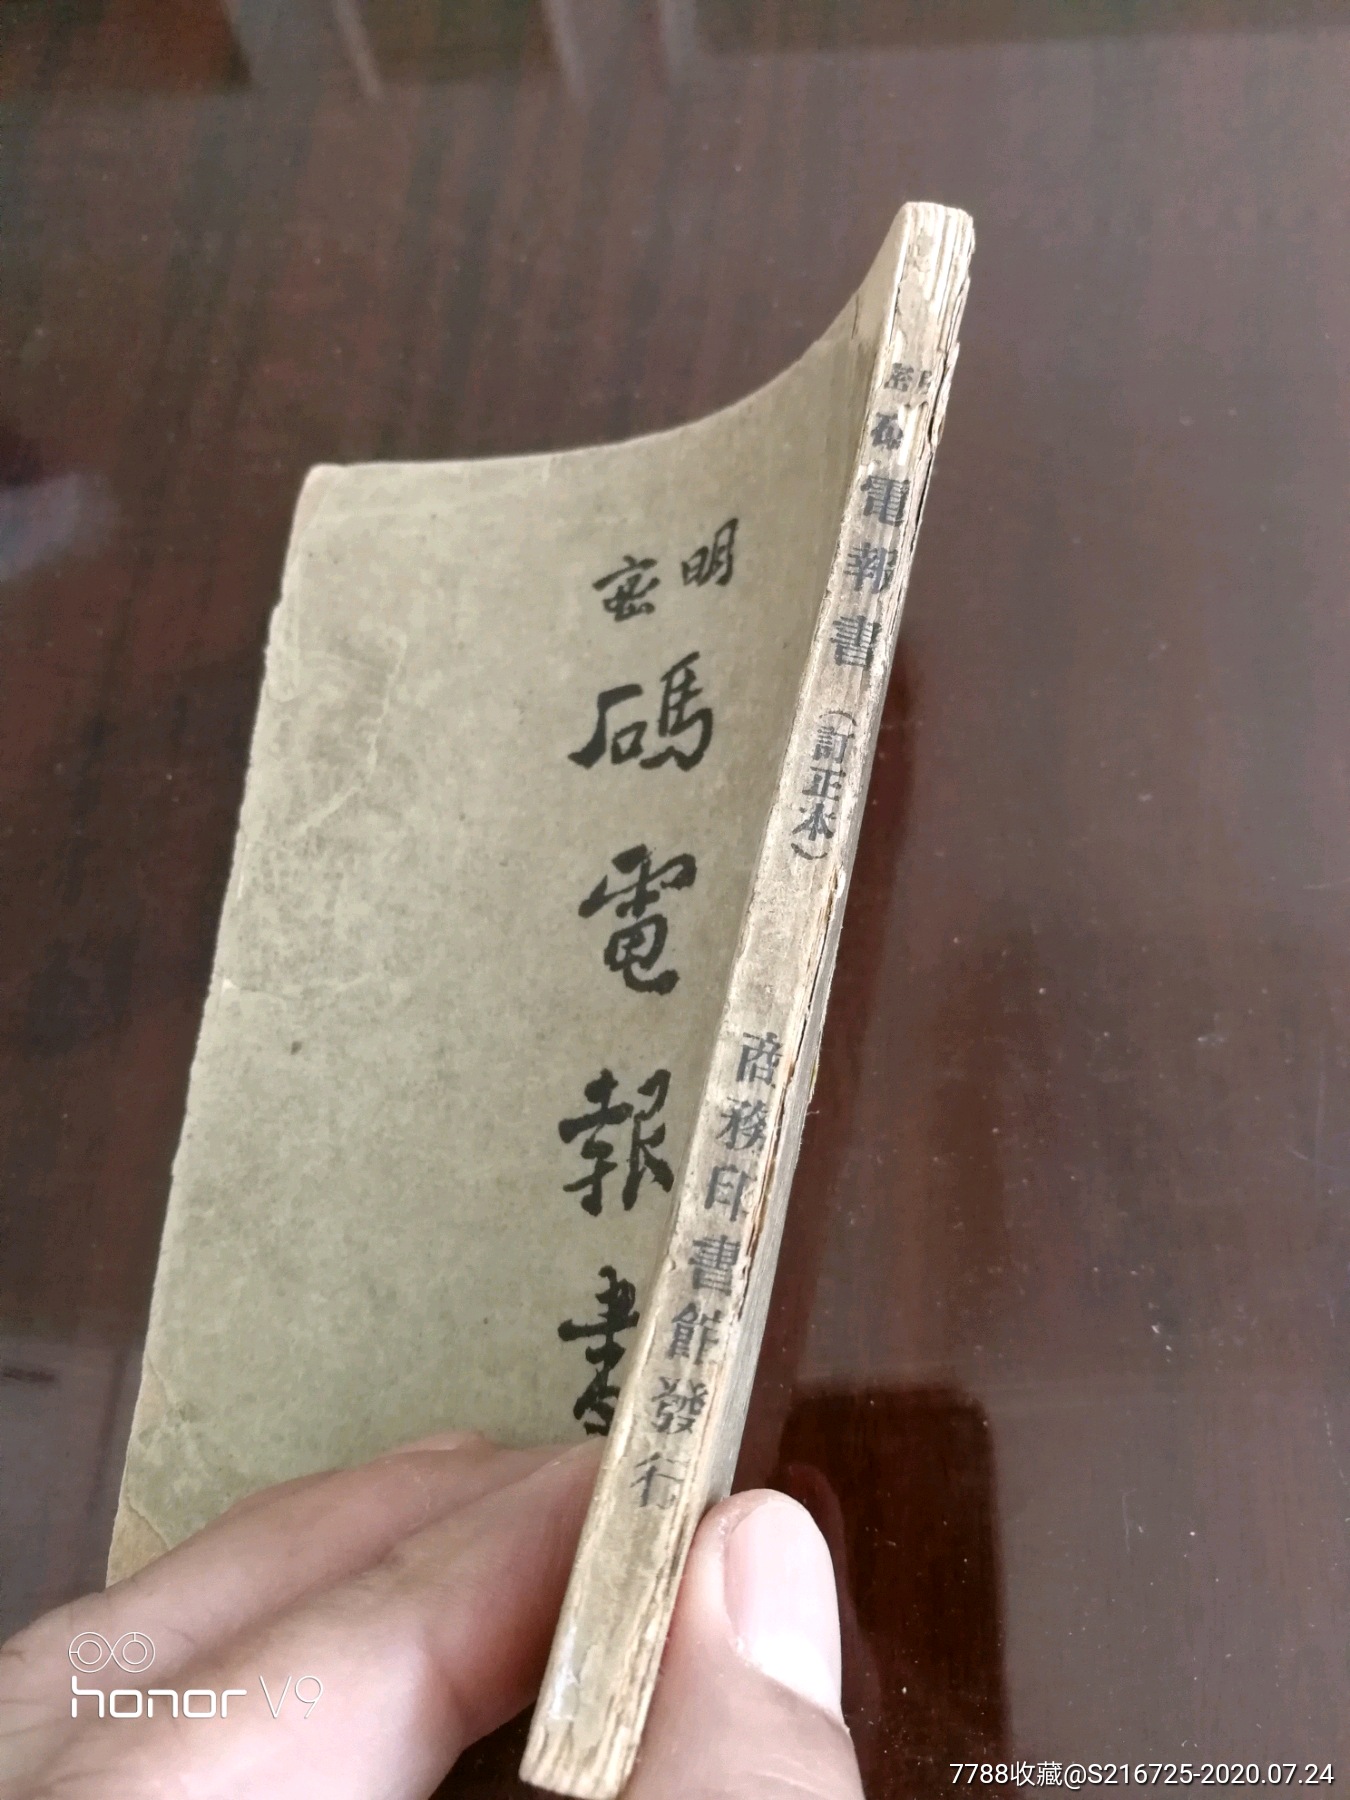 明密
碼電報書
明密碼電報書（訂正本）
商務印書館發行
honor V9
7788收藏@S216725-2020.07.24